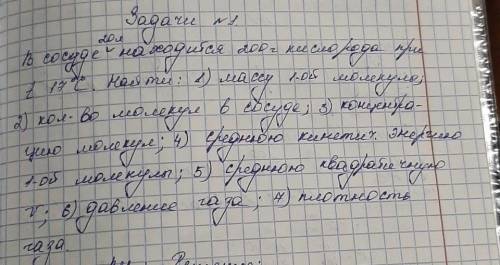 Задачи №1
20л
В сосуде находится 200г кислорода при
t 17°C. Найти: 1) массу 1-ой молекулы;
2) кол-во молекул в сосуде; 3) концентра-
цию молекул; 4) среднюю кинетич. энергию
1-ой молекулы; 5) среднюю квадратичную
v; 6) давление газа; 7) плотность
газа.